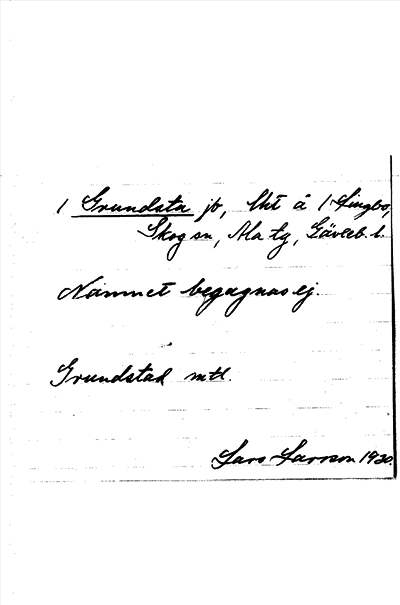 1 Grundsta jb, lht å 1 Lingbo,
Skog sn, Ala tg, Gävleb. l.
Namnet begagnas ej.
Grundstad mtl.
Lars Larsson 1930.